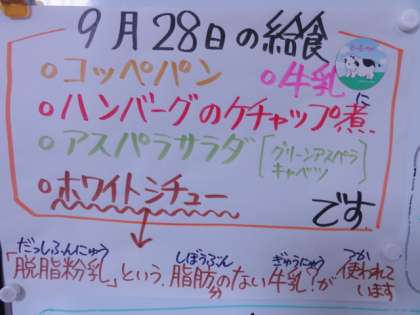 9月28日の給食
○コッペパン ○牛乳
○ハンバーグのケチャップ煮に
○アスパラサラダ [グリーンアスパラ
キャベツ]
○ホワイトシチュー です
だっしふんにゅう しぼうぶん ぎゅうにゅう つか
「脱脂粉乳」という、脂肪分のない牛乳!が使われて
います